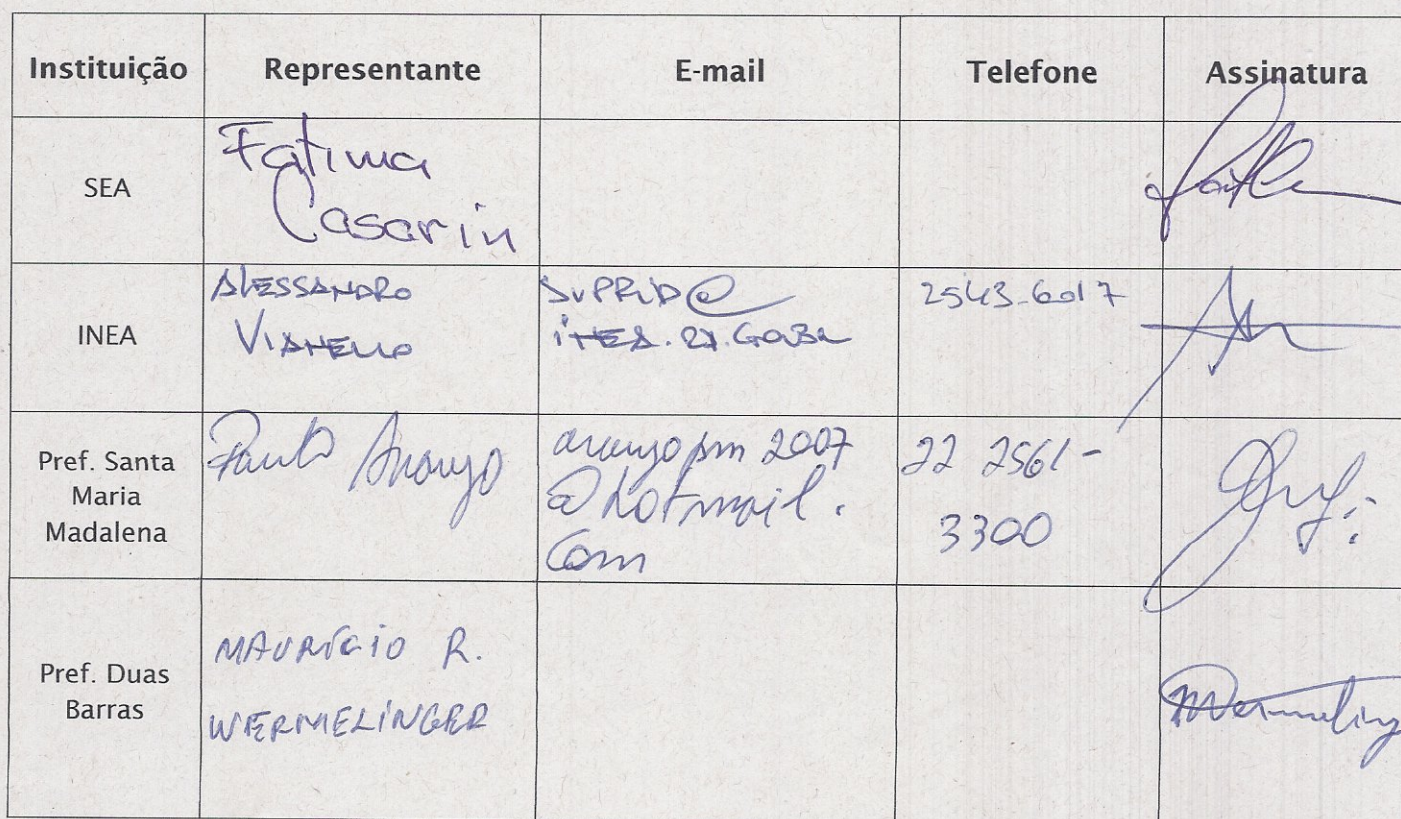 Instituição Representante E-mail Telefone Assinatura
SEA
Fatima
Casarin
INEA
ALESSANDRO
VIANELLO
SUPRID@
INEA.RJ.GOV.BR
2543-6017
Pref. Santa
Maria
Madalena
Paulo Araujo
araujopm2007
@hotmail.
com
22 2561-
3300
Pref. Duas
Barras
MAURÍCIO R.
WERMELINGER